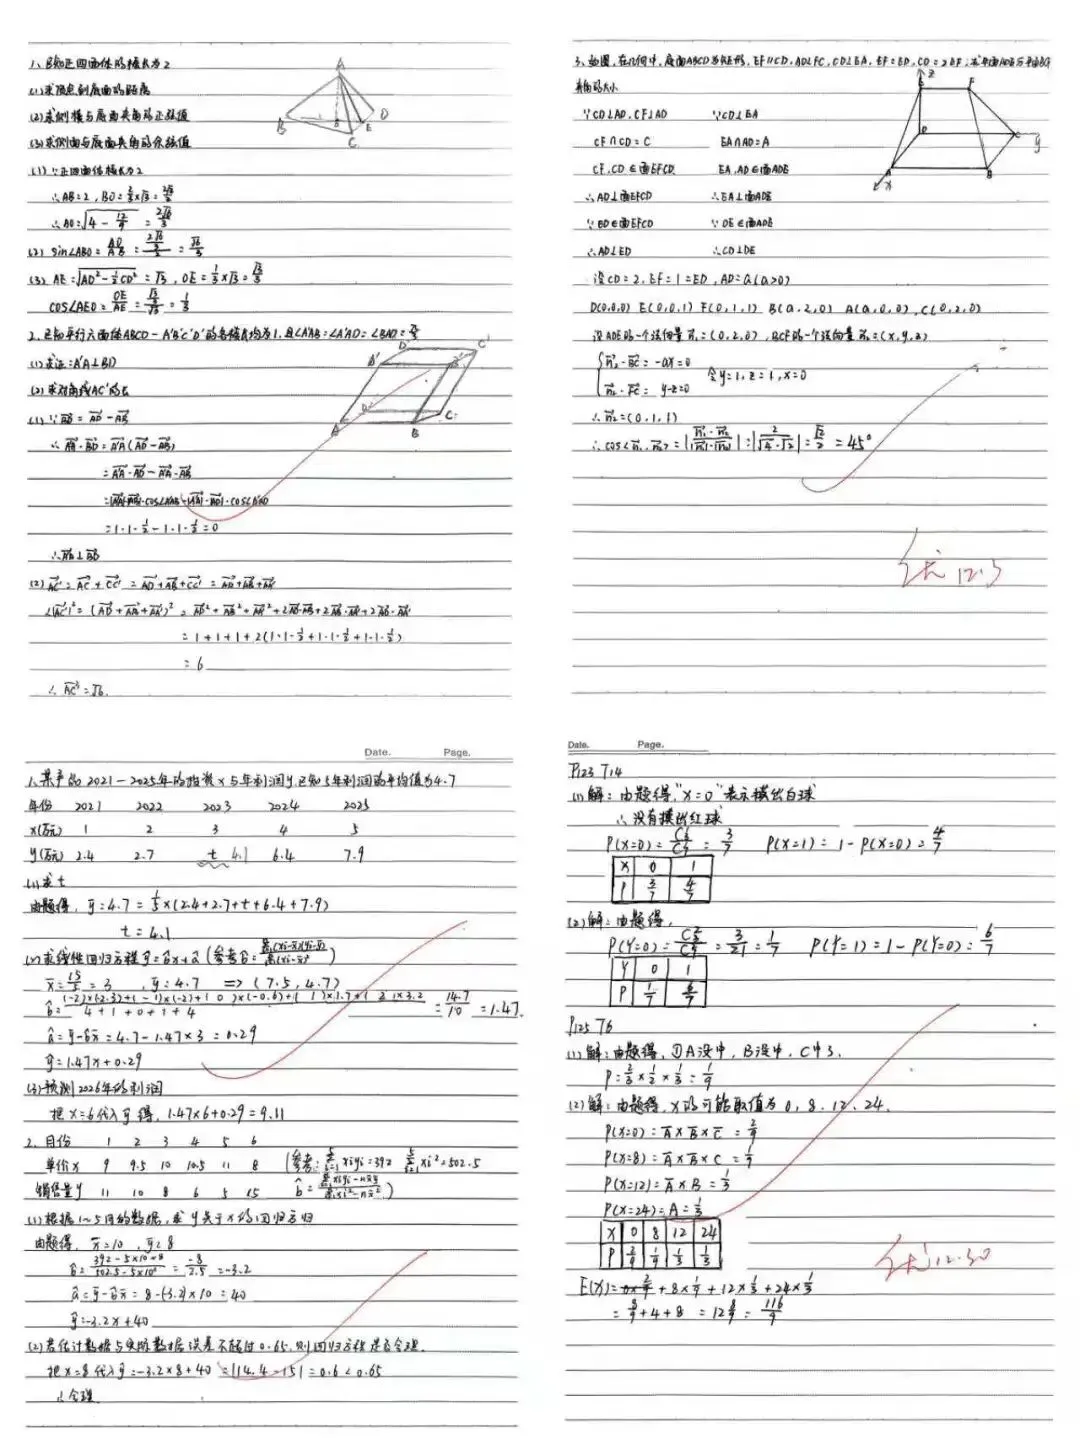 1、已知正四面体的棱长为2
(1)求顶点到底面的距离
(2)求侧棱与底面夹角的正弦值
(3)求侧面与底面夹角的余弦值
A
B
C
D
E
(1)∵正四面体棱长为2
∴AB=2, BO=2/3×√3=2√3/3
∴AO=√(4-12/9)=2√6/3
(2) sin∠ABO=AO/AB=(2√6/3)/2=√6/3
(3) AE=√(AD²-½CD²)=√3, OE=1/3×√3=√3/3
COS∠AEO=OE/AE=(√3/3)/√3=1/3
2、已知平行六面体ABCD-A'B'C'D'的各棱长均为1,且∠A'AB=∠A'AD=∠BAD=π/3
(1)求证:A'A⊥BD
(2)求对角线AC'的长
D'
C'
A'
B'
D
C
A
B
(1)∵BD=AD-AB
∴AA'·BD=AA'(AD-AB)
=AA'·AD-AA'·AB
=1·1·½-1·1·½=0
∴AA'⊥BD
(2)AC'=AC+CC'=AD+AB+CC'=AD+AB+AA'
∴(AC')²=(AD+AB+AA')²=AD²+AB²+AA'²+2AD·AB+2AB·AA'+2AD·AA'
=1+1+1+2(1·1·½+1·1·½+1·1·½)
=6
∴AC'=√6.
3、如图,在几何中,底面ABCD为矩形,EF∥CD,AD⊥FC,CD⊥EA,EF=ED,CD=2EF,求平面ADE与平面BCF
夹角的大小
z
E
F
D
C
y
A
B
x
∵CD⊥AD,CF⊥AD ∵CD⊥EA
CF∩CD=C EA∩AD=A
CF,CD∈面EFCD EA,AD∈面ADE
∴AD⊥面EFCD ∴EA⊥面ADE
∵ED∈面EFCD ∵DE∈面ADE
∴AD⊥ED ∴CD⊥DE
设CD=2,EF=1=ED,AD=a(a>0)
D(0,0,0) E(0,0,1) F(0,1,1) B(a,2,0) A(a,0,0),C(0,2,0)
设ADE的一个法向量n₁=(0,2,0),BCF的一个法向量n₂=(x,y,z)
{n₂·BC=-ax=0
n₂·FC=y-z=0 令y=1,z=1,x=0
∴n₂=(0,1,1)
∴cos<n₁,n₂>=|n₁·n₂/|n₁|·|n₂||=|2/√4·√2|=√2/2=45°
优 12.3
Date. Page.
1、某产品2021-2025年的投资x与年利润y,已知5年利润的平均值为4.7
年份 2021 2022 2023 2024 2025
x(万元) 1 2 3 4 5
y(万元) 2.4 2.7 t 4.1 6.4 7.9
(1)求t
由题得,ȳ=4.7=1/5×(2.4+2.7+t+6.4+7.9)
t=4.1
(2)求线性回归方程ŷ=b̂x+â(参考b̂=Σ(xi-x̄)(yi-ȳ)/Σ(xi-x̄)²)
x̄=15/5=3,ȳ=4.7 ⇒(7.5,4.7)
b̂=(-2)×(-2.3)+(-1)×(-2)+(0)×(-0.6)+(1)×1.7+(2)×3.2/4+1+0+1+4=14.7/10=1.47.
â=ȳ-b̂x̄=4.7-1.47×3=0.29
ŷ=1.47x+0.29
(3)预测2026年的利润
把x=6代入ŷ得,1.47×6+0.29=9.11
2、月份 1 2 3 4 5 6
单价x 9 9.5 10 10.5 11 8 (参考:Σxiyi=392 Σxi²=502.5
销售量y 11 10 8 6 5 15 b̂=Σxiyi-nx̄ȳ/Σxi²-nx̄²)
(1)根据1~5月的数据,求y关于x的回归方程
由题得,x̄=10,ȳ=8
b̂=392-5×10×8/502.5-5×10²=-8/2.5=-3.2
â=ȳ-b̂x̄=8-(-3.2)×10=40
ŷ=-3.2x+40
(2)若估计数据与实际数据误差不超过0.65,则回归方程是否合理.
把x=8代入ŷ=-3.2×8+40=|14.4-15|=0.6<0.65
∴合理.
Date. Page.
P123 T14
(1)解:由题得,"X=0"表示摸出白球
∴没有摸出红球
P(X=0)=3/7 P(X=1)=1-P(X=0)=4/7
X 0 1
P 3/7 4/7
(2)解:由题得,
P(Y=0)=3/21=1/7 P(Y=1)=1-P(Y=0)=6/7
Y 0 1
P 1/7 6/7
P125 T6
(1)解:由题得,①A没中,B没中,C中3.
P=2/3×1/2×1/3=1/9
(2)解:由题得,X的可能取值为0,8,12,24.
P(X=0)=A̅×B̅×C̅=2/9
P(X=8)=A̅×B̅×C=1/9
P(X=12)=A̅×B=1/3
P(X=24)=A=1/3
X 0 8 12 24
P 2/9 1/9 1/3 1/3
E(X)=0×2/9+8×1/9+12×1/3+24×1/3
=8/9+4+8=12 8/9=116/9
优 12.30